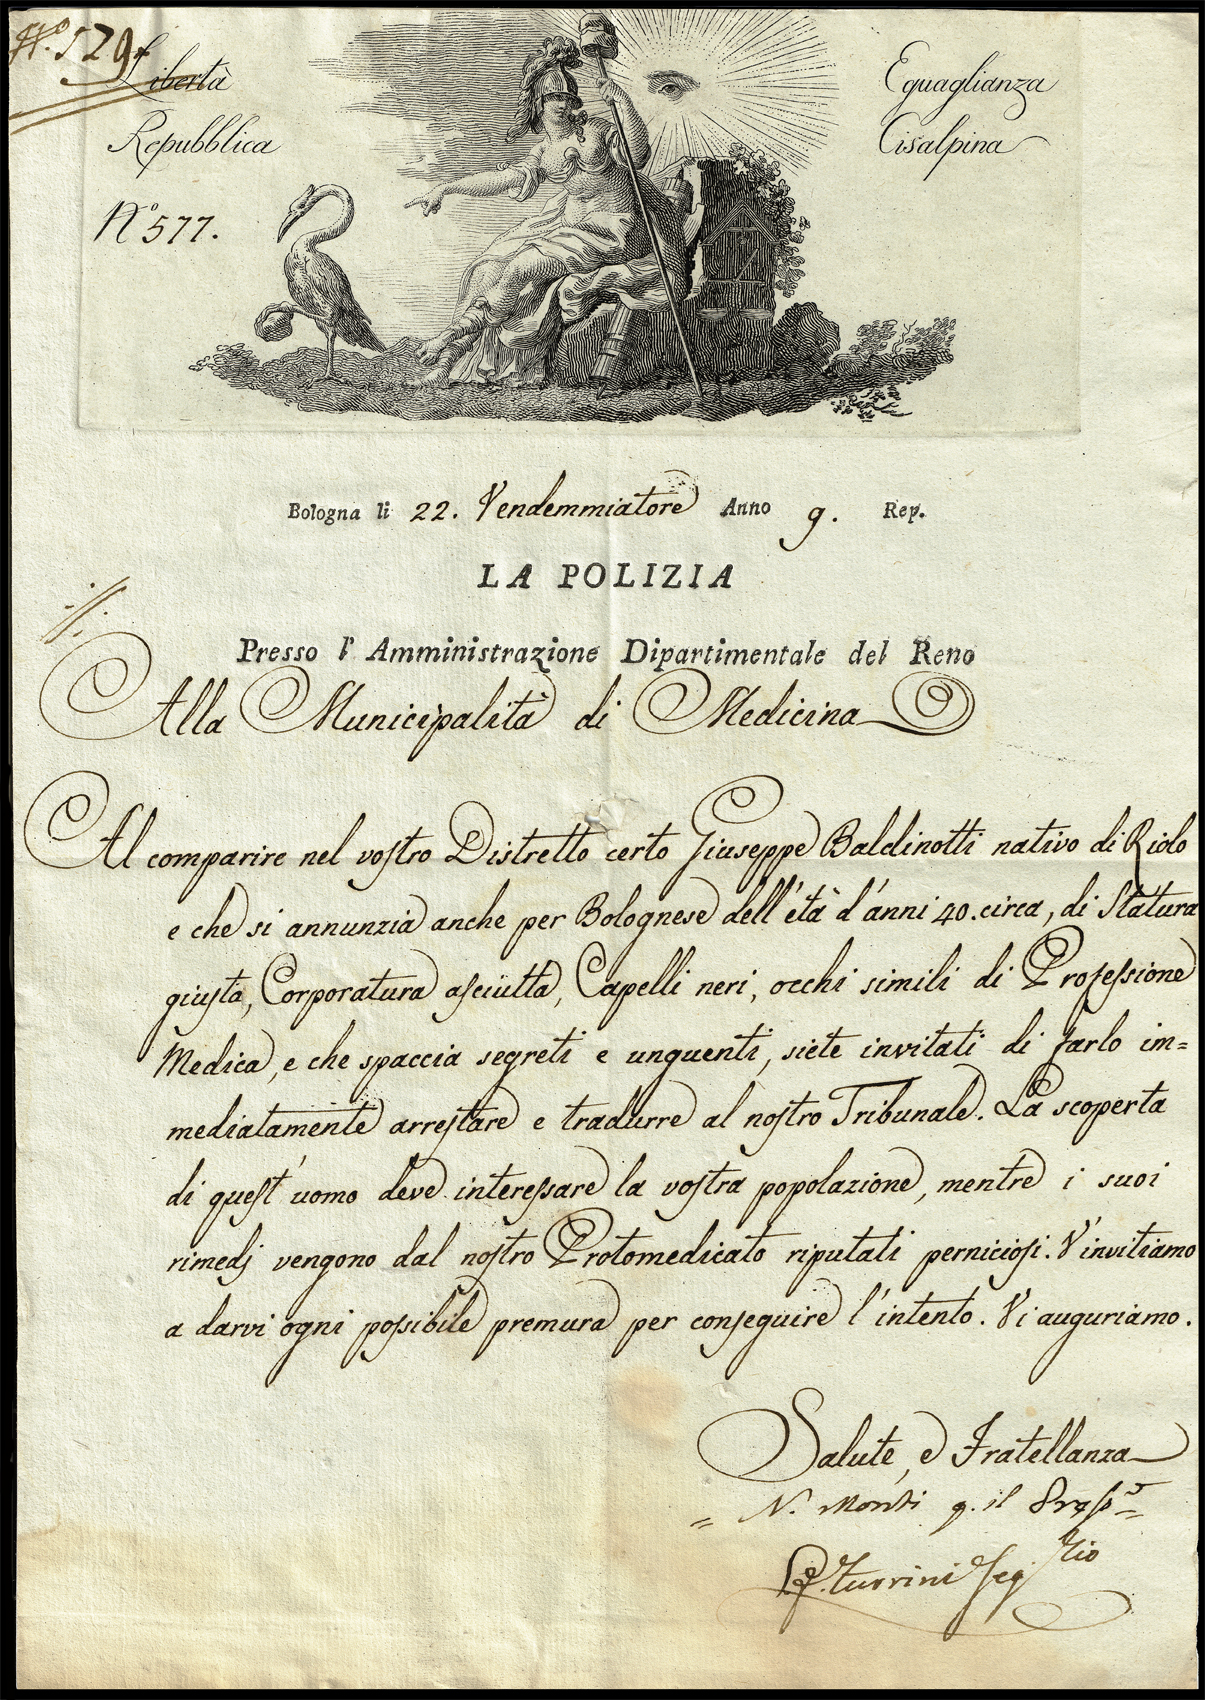 Nº. 529
Libertà Eguaglianza
Repubblica Cisalpina
Nº 577.
Bologna li 22. Vendemmiatore Anno 9. Rep.
LA POLIZIA
Presso l' Amministrazione Dipartimentale del Reno
Alla Municipalità di Medicina
Al comparire nel vostro Distretto certo Giuseppe Baldinotti nativo di Riolo
e che si annunzia anche per Bolognese dell'età d'anni 40. circa, di Statura
giusta, Corporatura asciutta, Capelli neri, occhi simili di Professione
Medica, e che spaccia segreti e unguenti, siete invitati di farlo im=
mediatamente arrestare e tradurre al nostro Tribunale. La scoperta
di quest'uomo deve interessare la vostra popolazione, mentre i suoi
rimedj vengono dal nostro Protomedicato riputati perniciosi. V'invitiamo
a darvi ogni possibile premura per conseguire l'intento. Vi auguriamo.
Salute, e Fratellanza
= N. Monti p. il =
Turrini Seg.rio